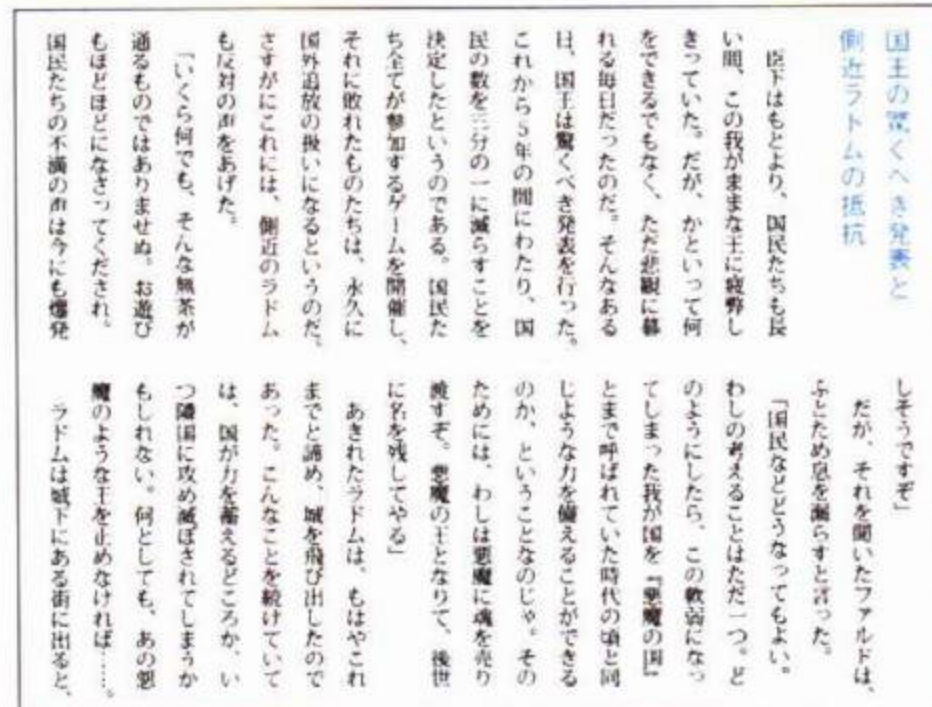 国王の驚くべき発表と
側近ラトムの抵抗
臣下はもとより、国民たちも長
い間、この我がままな王に疲弊し
きっていた。だが、かといって何
をできるでもなく、ただ悲観に暮
れる毎日だったのだ。そんなある
日、国王は驚くべき発表を行った。
これから5年の間にわたり、国
民の数を三分の一に減らすことを
決定したというのである。国民た
ち全てが参加するゲームを開催し、
それに敗れたものたちは、永久に
国外追放の扱いになるというのだ。
さすがにこれには、側近のラドム
も反対の声をあげた。
「いくら何でも、そんな無茶が
通るものではありませぬ。お遊び
もほどほどになさってくだされ。
国民たちの不満の声は今にも爆発
しそうですぞ」
だが、それを聞いたファルドは、
ふとため息を漏らすと言った。
「国民などどうなってもよい。
わしの考えることはただ一つ。ど
のようにしたら、この軟弱になっ
てしまった我が国を『悪魔の国』
とまで呼ばれていた時代の頃と同
じような力を備えることができる
のか、ということなのじゃ。その
ためには、わしは悪魔に魂を売り
渡すぞ。悪魔の王となりて、後世
に名を残してやる」
あきれたラドムは、もはやこれ
までと諦め、城を飛び出したので
あった。こんなことを続けていて
は、国が力を蓄えるどころか、い
つ隣国に攻め滅ぼされてしまうか
もしれない。何としても、あの悪
魔のような王を止めなければ……。
ラドムは城下にある街に出ると、